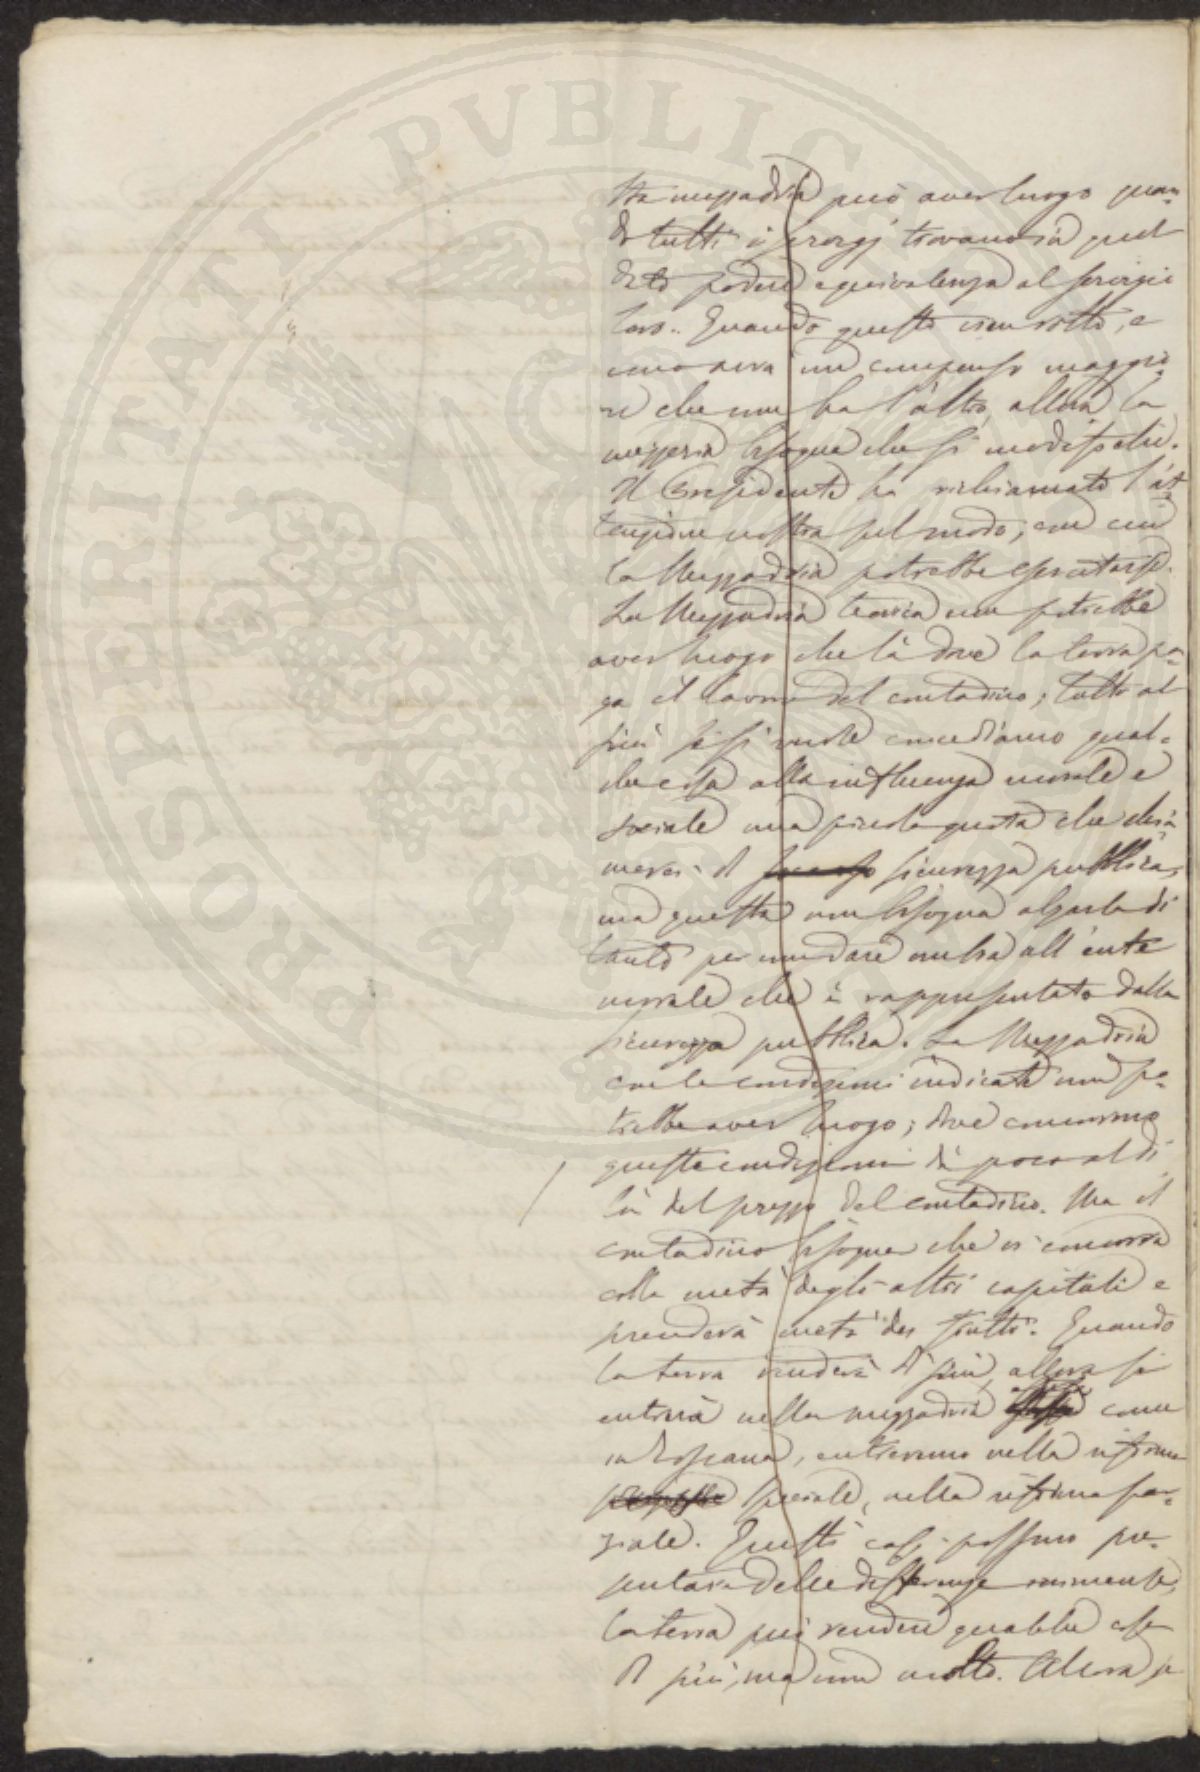 PROSPERITATI PVBLICAE
sta mezzadria può aver luogo quan-
do tutti i servizj trovano in quel
dato podere equivalenza al servizio
loro. Quando questo vien rotto, e
uno avrà un compenso maggio-
re che non ha l'altro, allora la
mezzeria bisogna che si modifichi.
Il Presidente ha richiamato l'at-
tenzione nostra sul modo, con cui
la Mezzadria potrebbe esercitarsi.
La Mezzadria teorica non potrebbe
aver luogo che là dove la terra pa-
ga il lavoro del contadino; tutto al
più se si vuole concediamo qual-
che cosa alla influenza morale e
sociale una piccola quota che chia-
merei di sicurezza pubblica,
ma questa non bisogna alzarla di
tanto per non dare ombra all'ente
morale che è rappresentato dalla
sicurezza pubblica. La Mezzadria
con le condizioni indicate non po-
trebbe aver luogo; dove concorrono
queste condizioni dà poco al di
là del prezzo del contadino. Ma il
contadino bisogna che vi concorra
colla metà degli altri capitali e
prenderà metà dei frutti. Quando
la terra renderà di più, allora si
entrerà nella mezzadria come
in Toscana, entreremo nella riforma
speciale, nella riforma par-
ziale. Questi casi possono pre-
sentare delle differenze
la terra può rendere qualche cosa
di più, ma non molto. Allora se